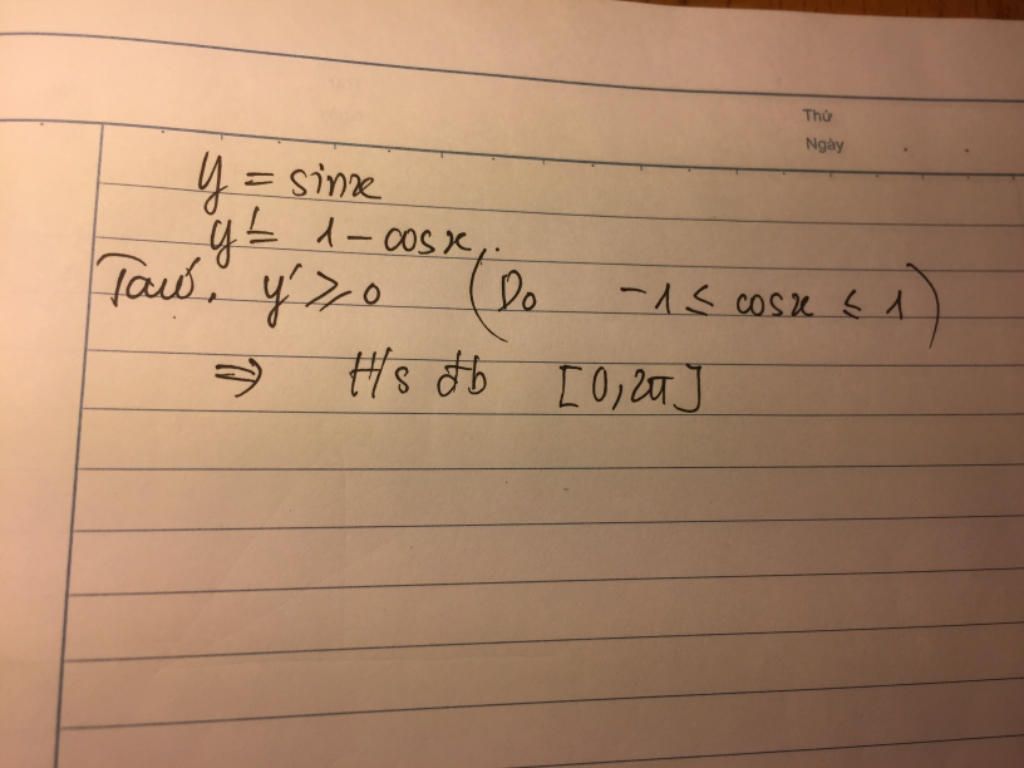 Thứ
Ngày
y = sinx
y' = 1 - cosx.
Ta có. y' ⩾ 0 (Do -1 ≤ cosx ≤ 1)
⇒ H/s đb [0, 2π]